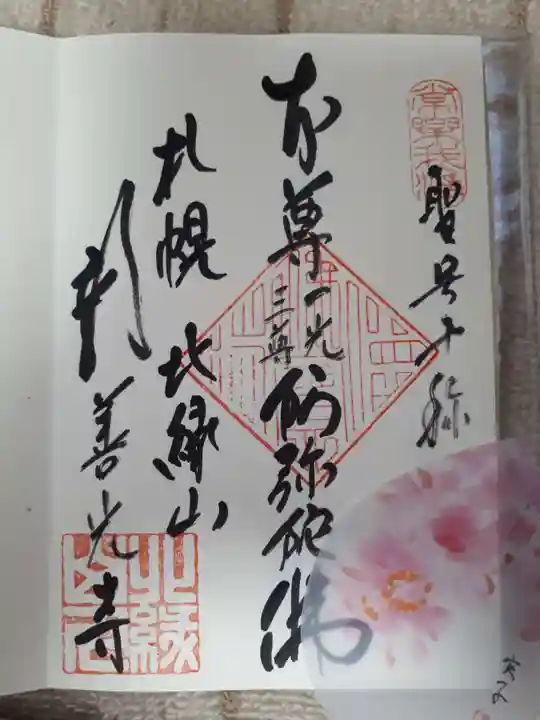 聖号十称
本尊一光三尊阿弥陀佛
札幌 北縁山
新善光寺